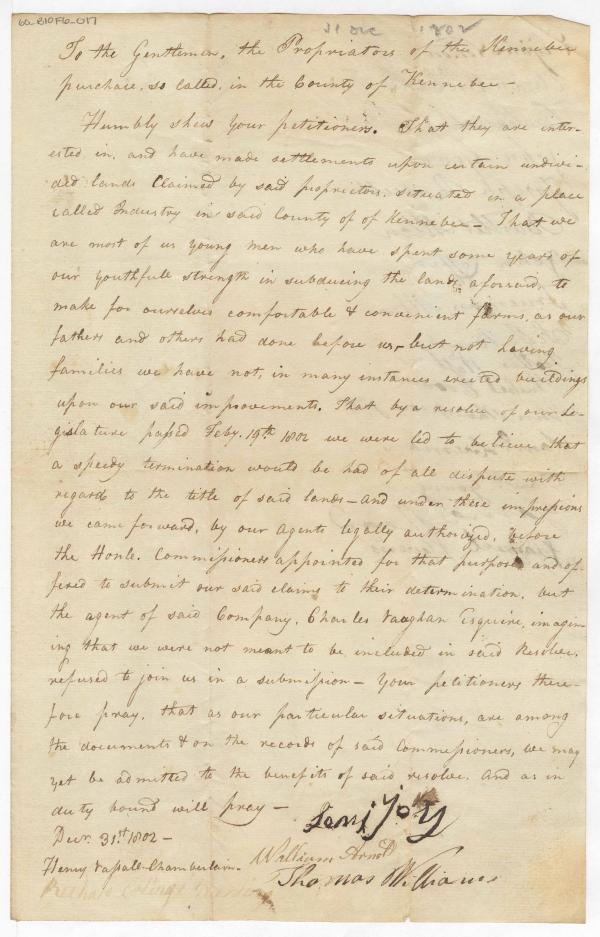 60_B10F6_017
31 Dec 1802
To the Gentlemen, the Propriators of the Kennebec
purchase, so called, in the County of Kennebec —
Humbly shew your petitioners. That they are inter-
ested in, and have made settlements upon certain undivi-
ded lands Claimed by said proprietors, situated in a place
called Industry in said County of of Kennebec — That we
are most of us young men who have spent some years of
our youthfull strength in subdueing the lands aforsaid, to
make for ourselves comfortable & convenient farms, as our
fathers and others had done before us, — but not having
families we have not, in many instances erected buildings
upon our said improvements. That by a resolve of our Le-
gislature passed Feby. 19th 1802 we were led to believe that
a speedy termination would be had of all dispute with
regard to the title of said lands — and under these impressions
we came forward, by our Agents legally authorized, before
the Honle. Commissioners appointed for that purpose and of-
fered to submit our said claims to their determination, but
the agent of said Company, Charles Vaughan Esquire, imagin-
ing that we were not meant to be included in said Resolve,
refused to join us in a submission — Your petitioners there-
fore pray, that as our particular situations, are among
the documents & on the records of said Commissioners, we may
yet be admitted to the benefits of said resolve. And as in
duty bound will pray —
Decr. 31st 1802 —
Levi
William Arnold
Henry Vassall Chamberlain
Thomas Williams